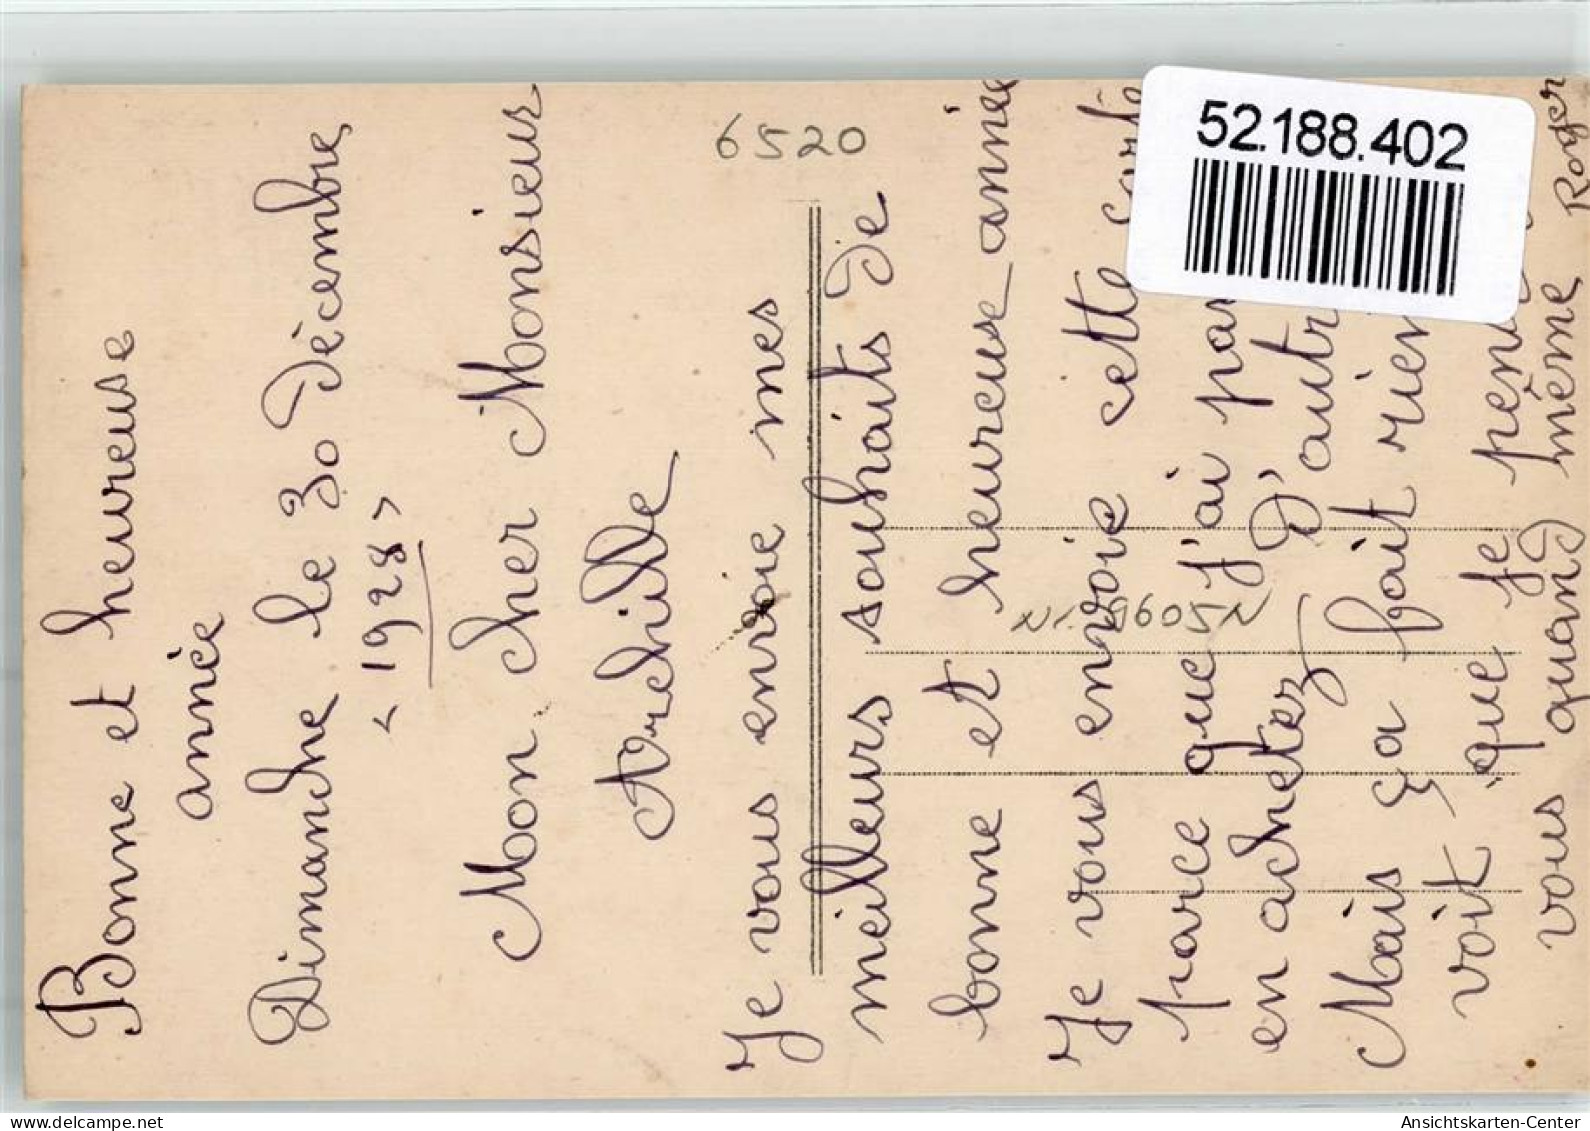 Bonne et heureuse
année
Dimanche le 30 Décembre
< 1928 >
Mon cher Monsieur
Archille
Je vous envoie mes
meilleurs souhaits de
bonne et heureuse année
Je vous envoie cette carte
parce que j'ai pas
en achetez D'autr
Mais ça fait rien
voit "que je pen
vous quand même Roger
6520
52.188.402
www.delcampe.net
Ansichtskarten-Center